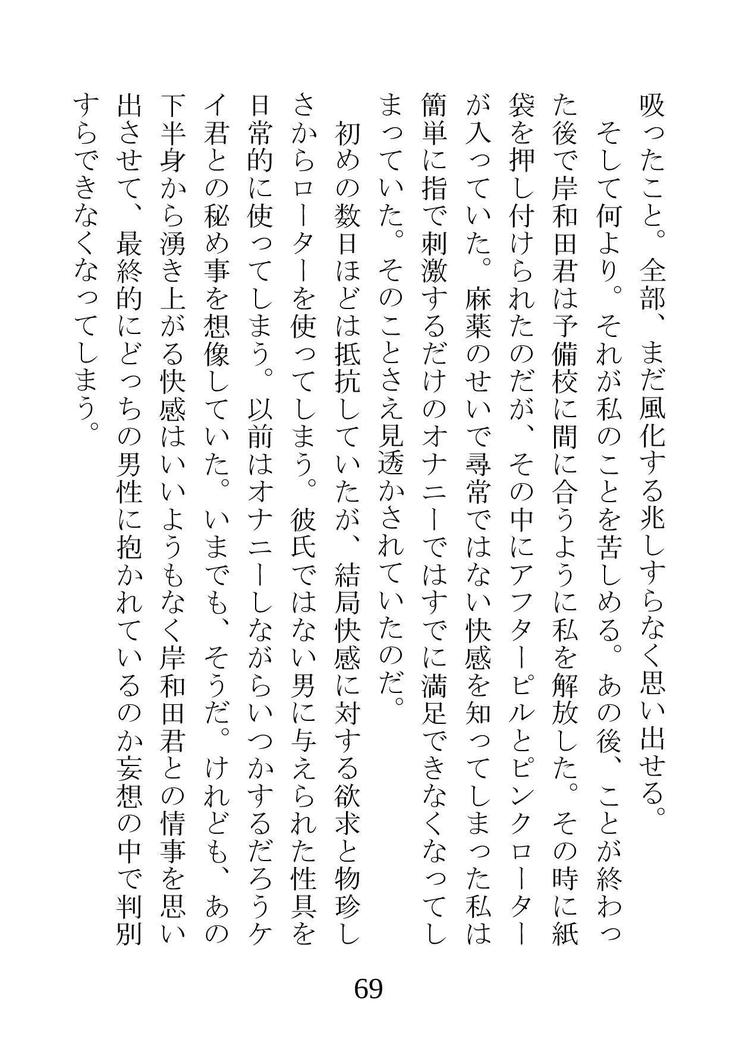 吸ったこと。全部、まだ風化する兆しすらなく思い出せる。
そして何より。それが私のことを苦しめる。あの後、ことが終わっ
た後で岸和田君は予備校に間に合うように私を解放した。その時に紙
袋を押し付けられたのだが、その中にアフターピルとピンクローター
が入っていた。麻薬のせいで尋常ではない快感を知ってしまった私は
簡単に指で刺激するだけのオナニーではすでに満足できなくなってし
まっていた。そのことさえ見透かされていたのだ。
初めの数日ほどは抵抗していたが、結局快感に対する欲求と物珍し
さからローターを使ってしまう。彼氏ではない男に与えられた性具を
日常的に使ってしまう。以前はオナニーしながらいつかするだろうケ
イ君との秘め事を想像していた。いまでも、そうだ。けれども、あの
下半身から湧き上がる快感はいいようもなく岸和田君との情事を思い
出させて、最終的にどっちの男性に抱かれているのか妄想の中で判別
すらできなくなってしまう。
69